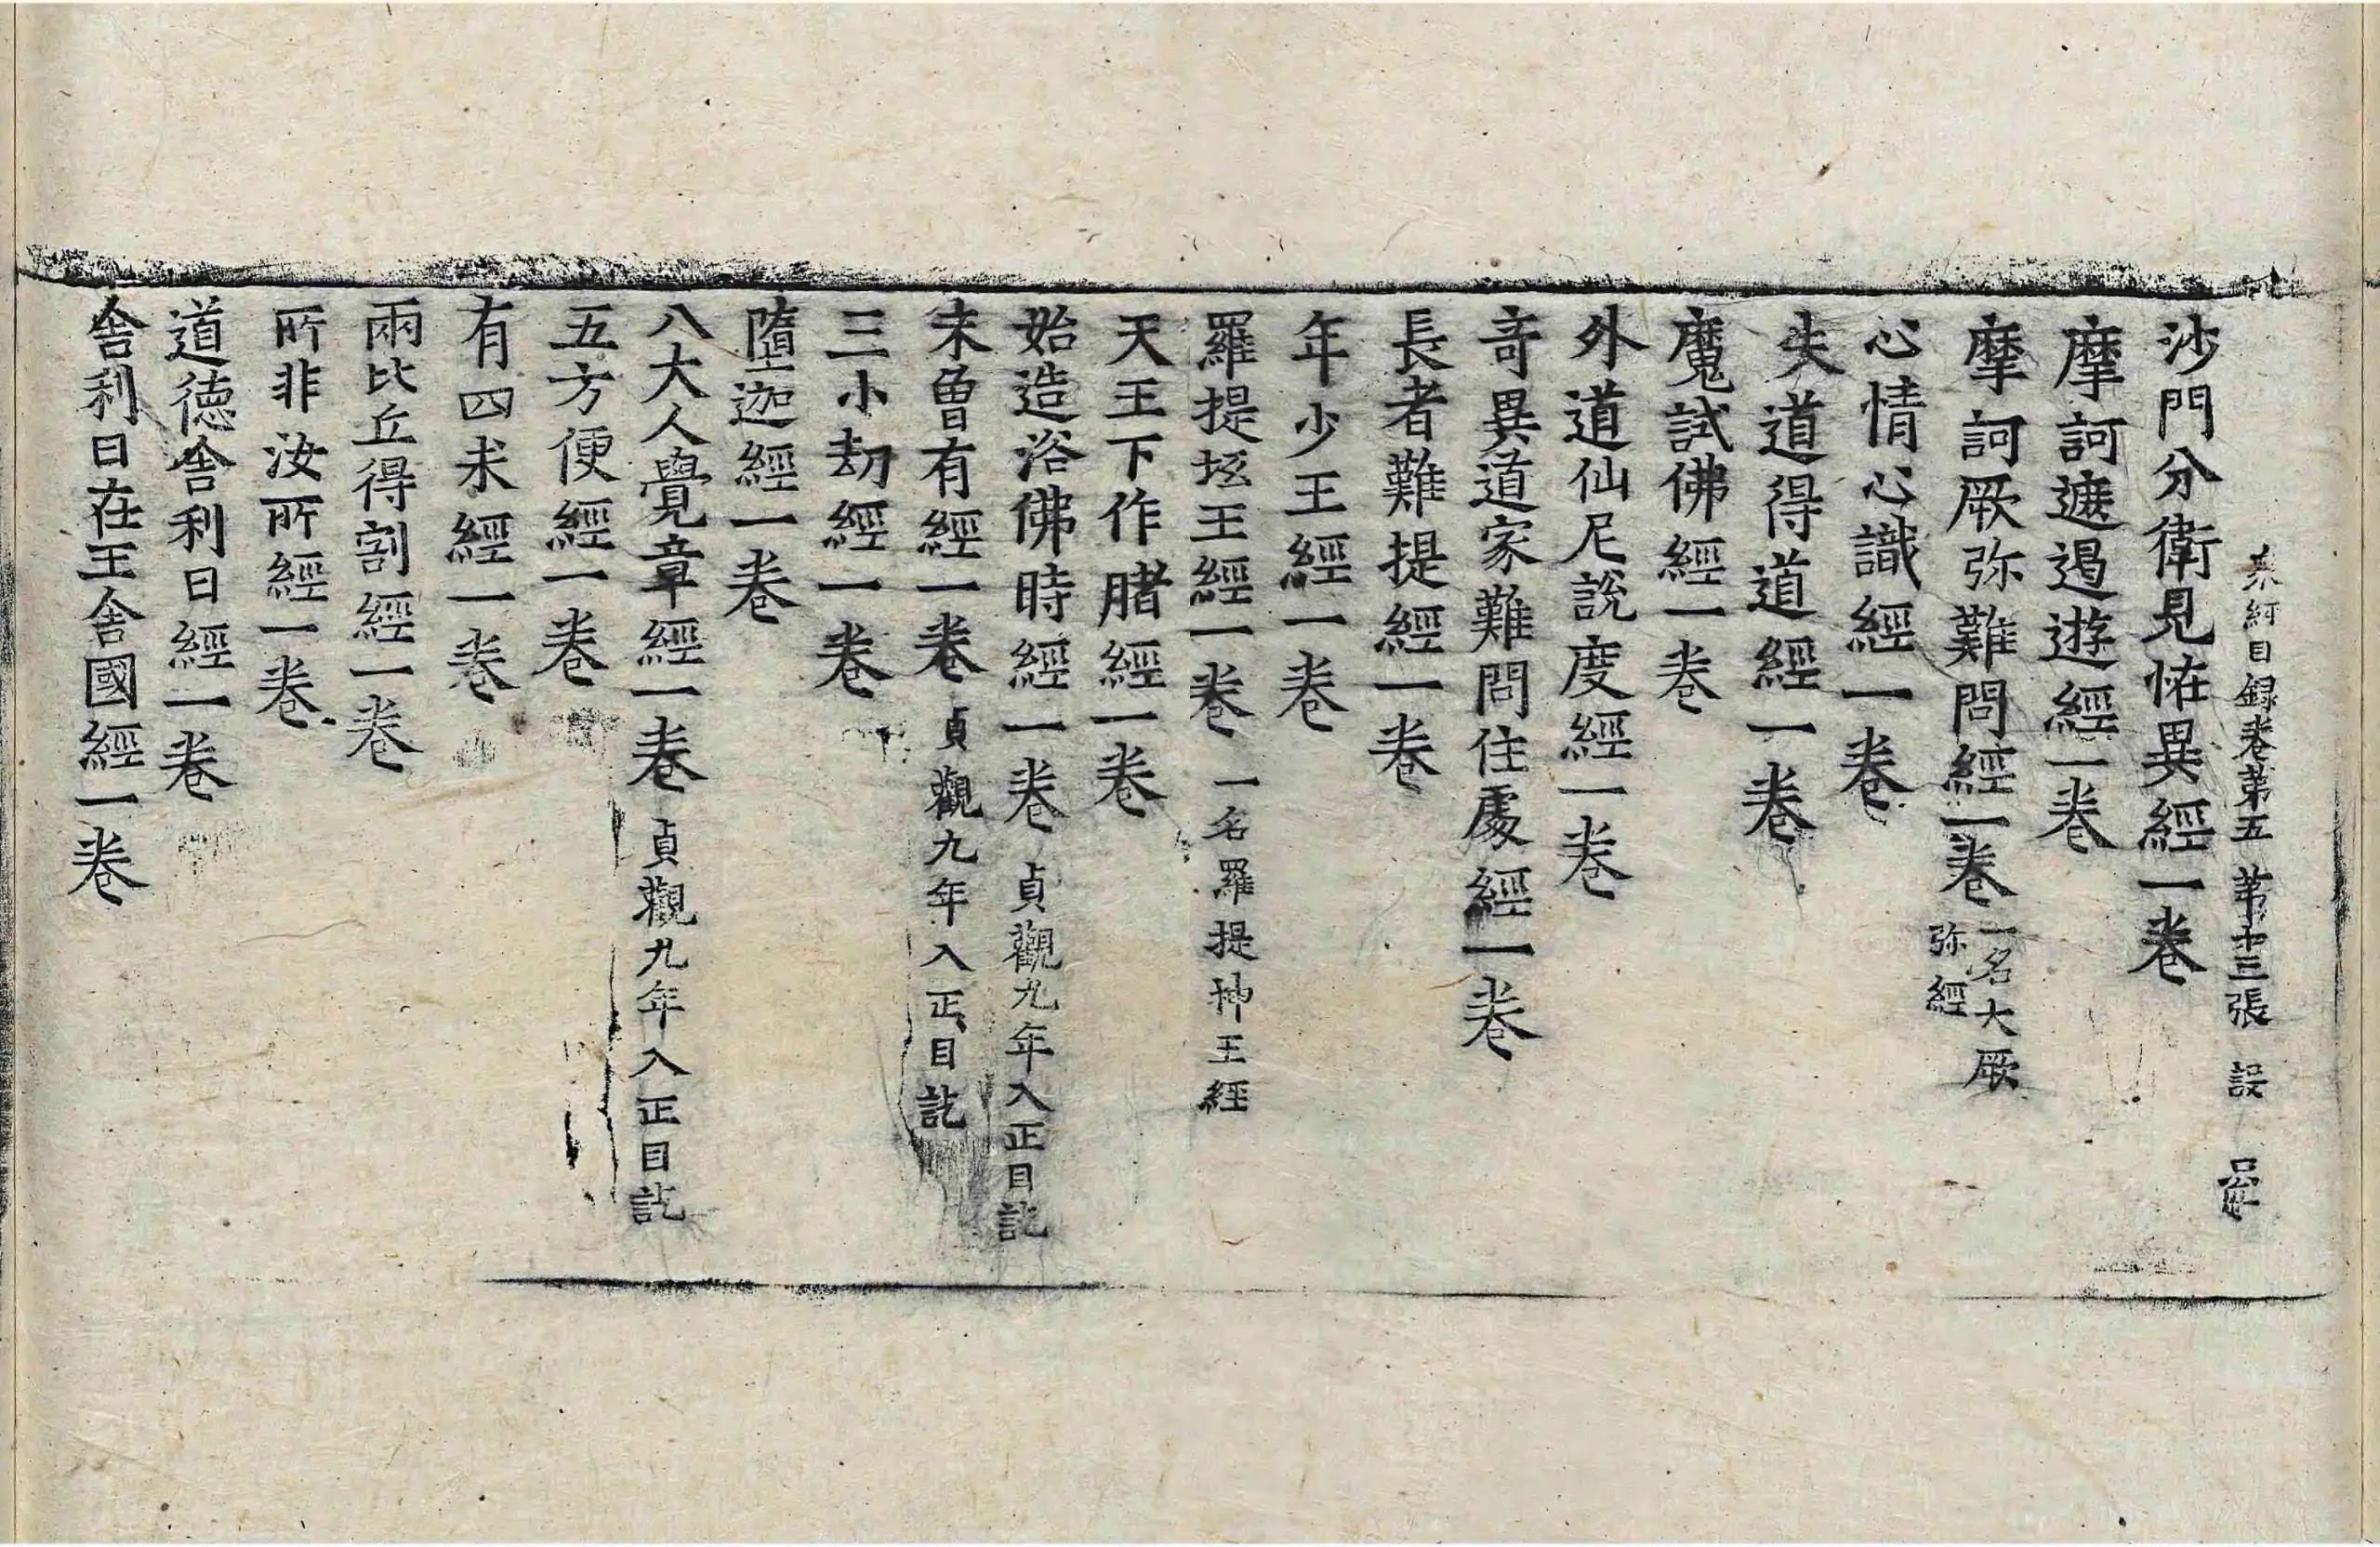 衆經目録卷第五 第十三張 設
沙門分衛見恠異經一卷
摩訶遮遏遊經一卷
摩訶厥弥難問經一卷 一名大厥弥經
心情心識經一卷
失道得道經一卷
魔試佛經一卷
外道仙尼說度經一卷
奇異道家難問住處經一卷
長者難提經一卷
年少王經一卷
羅提坻王經一卷 一名羅提押王經
天王下作䐗經一卷
始造浴佛時經一卷 貞觀九年入正目訖
未曾有經一卷 貞觀九年入正目訖
三小劫經一卷
墮迦經一卷
八大人覺章經一卷 貞觀九年入正目訖
五方便經一卷
有四求經一卷
兩比丘得割經一卷
所非汝所經一卷
道德舍利日經一卷
舍利日在王舍國經一卷